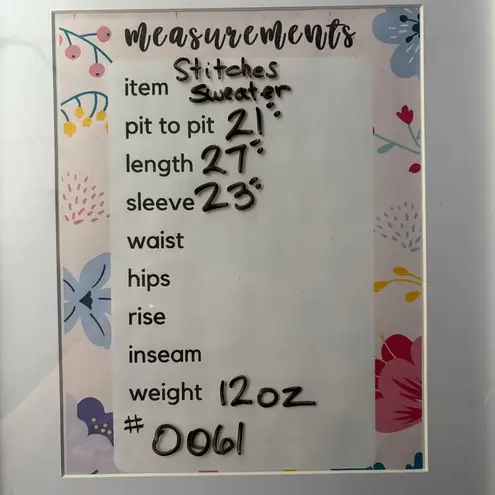 measurements
item Stitches
Sweater
pit to pit 21"
length 27"
sleeve 23"
waist
hips
rise
inseam
weight 12oz
# 0061